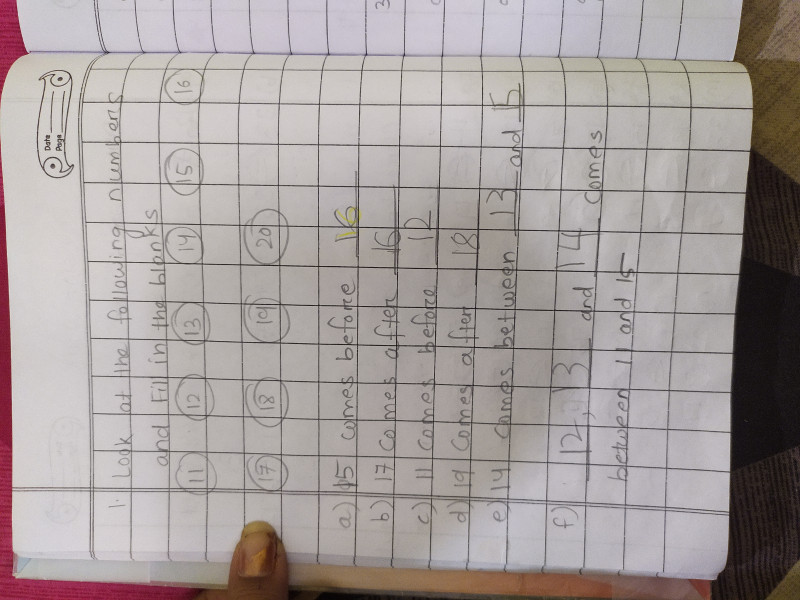 Date
Page
1. Look at the following numbers
and Fill in the blanks
11 12 13 14 15 16
17 18 19 20
a) 15 comes before 16
b) 17 comes after 16
c) 11 comes before 12
d) 19 comes after 18
e) 14 comes between 13 and 15
f) 12, 13 and 14 comes
between 11 and 15